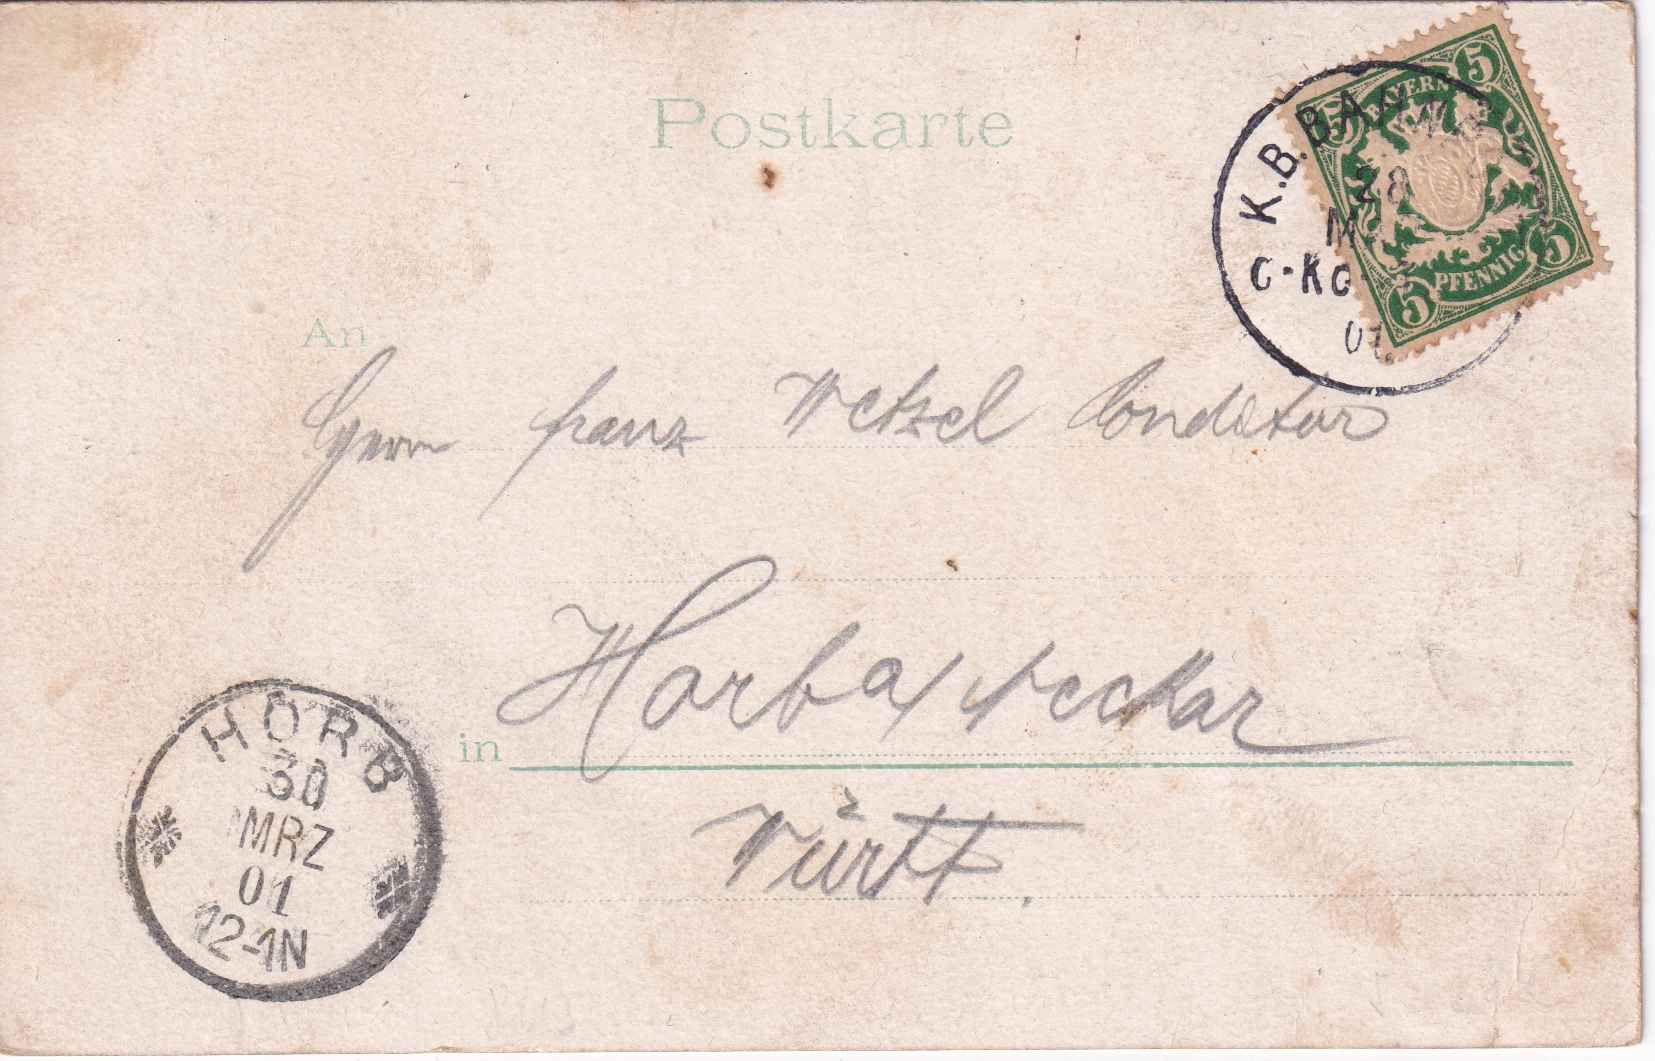 Postkarte
5 BAYERN 5
5 PFENNIG 5
K.B.BAH
28
M
01
An
Herrn Franz Wetzel Conditor
Horb a/Neckar
in
Württ.
HORB
30
MRZ
01
12-1N